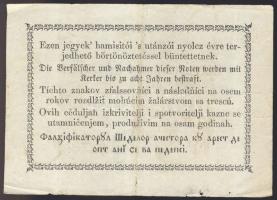 Ezen jegyek' hamisitói 's utánzói nyolcz évre ter-
jedhető börtönöztetéssel büntettetnek.
Die Verfälscher und Nachahmer dieser Noten werden mit
Kerker bis zu acht Jahren bestraft.
Tichto znakov zfalssovnjci a násljednjci na osem
rokov rozdlžit mohúcim žalárstvom sa trescú.
Ovih céduljah izkrivitelji i spotvoritelji kazne se
utamničenjem, produživim na osam godinah.
Фалхіфікаторꙋл Шеделор ачестора кꙋ арест де
опт ані се ва педепсі.